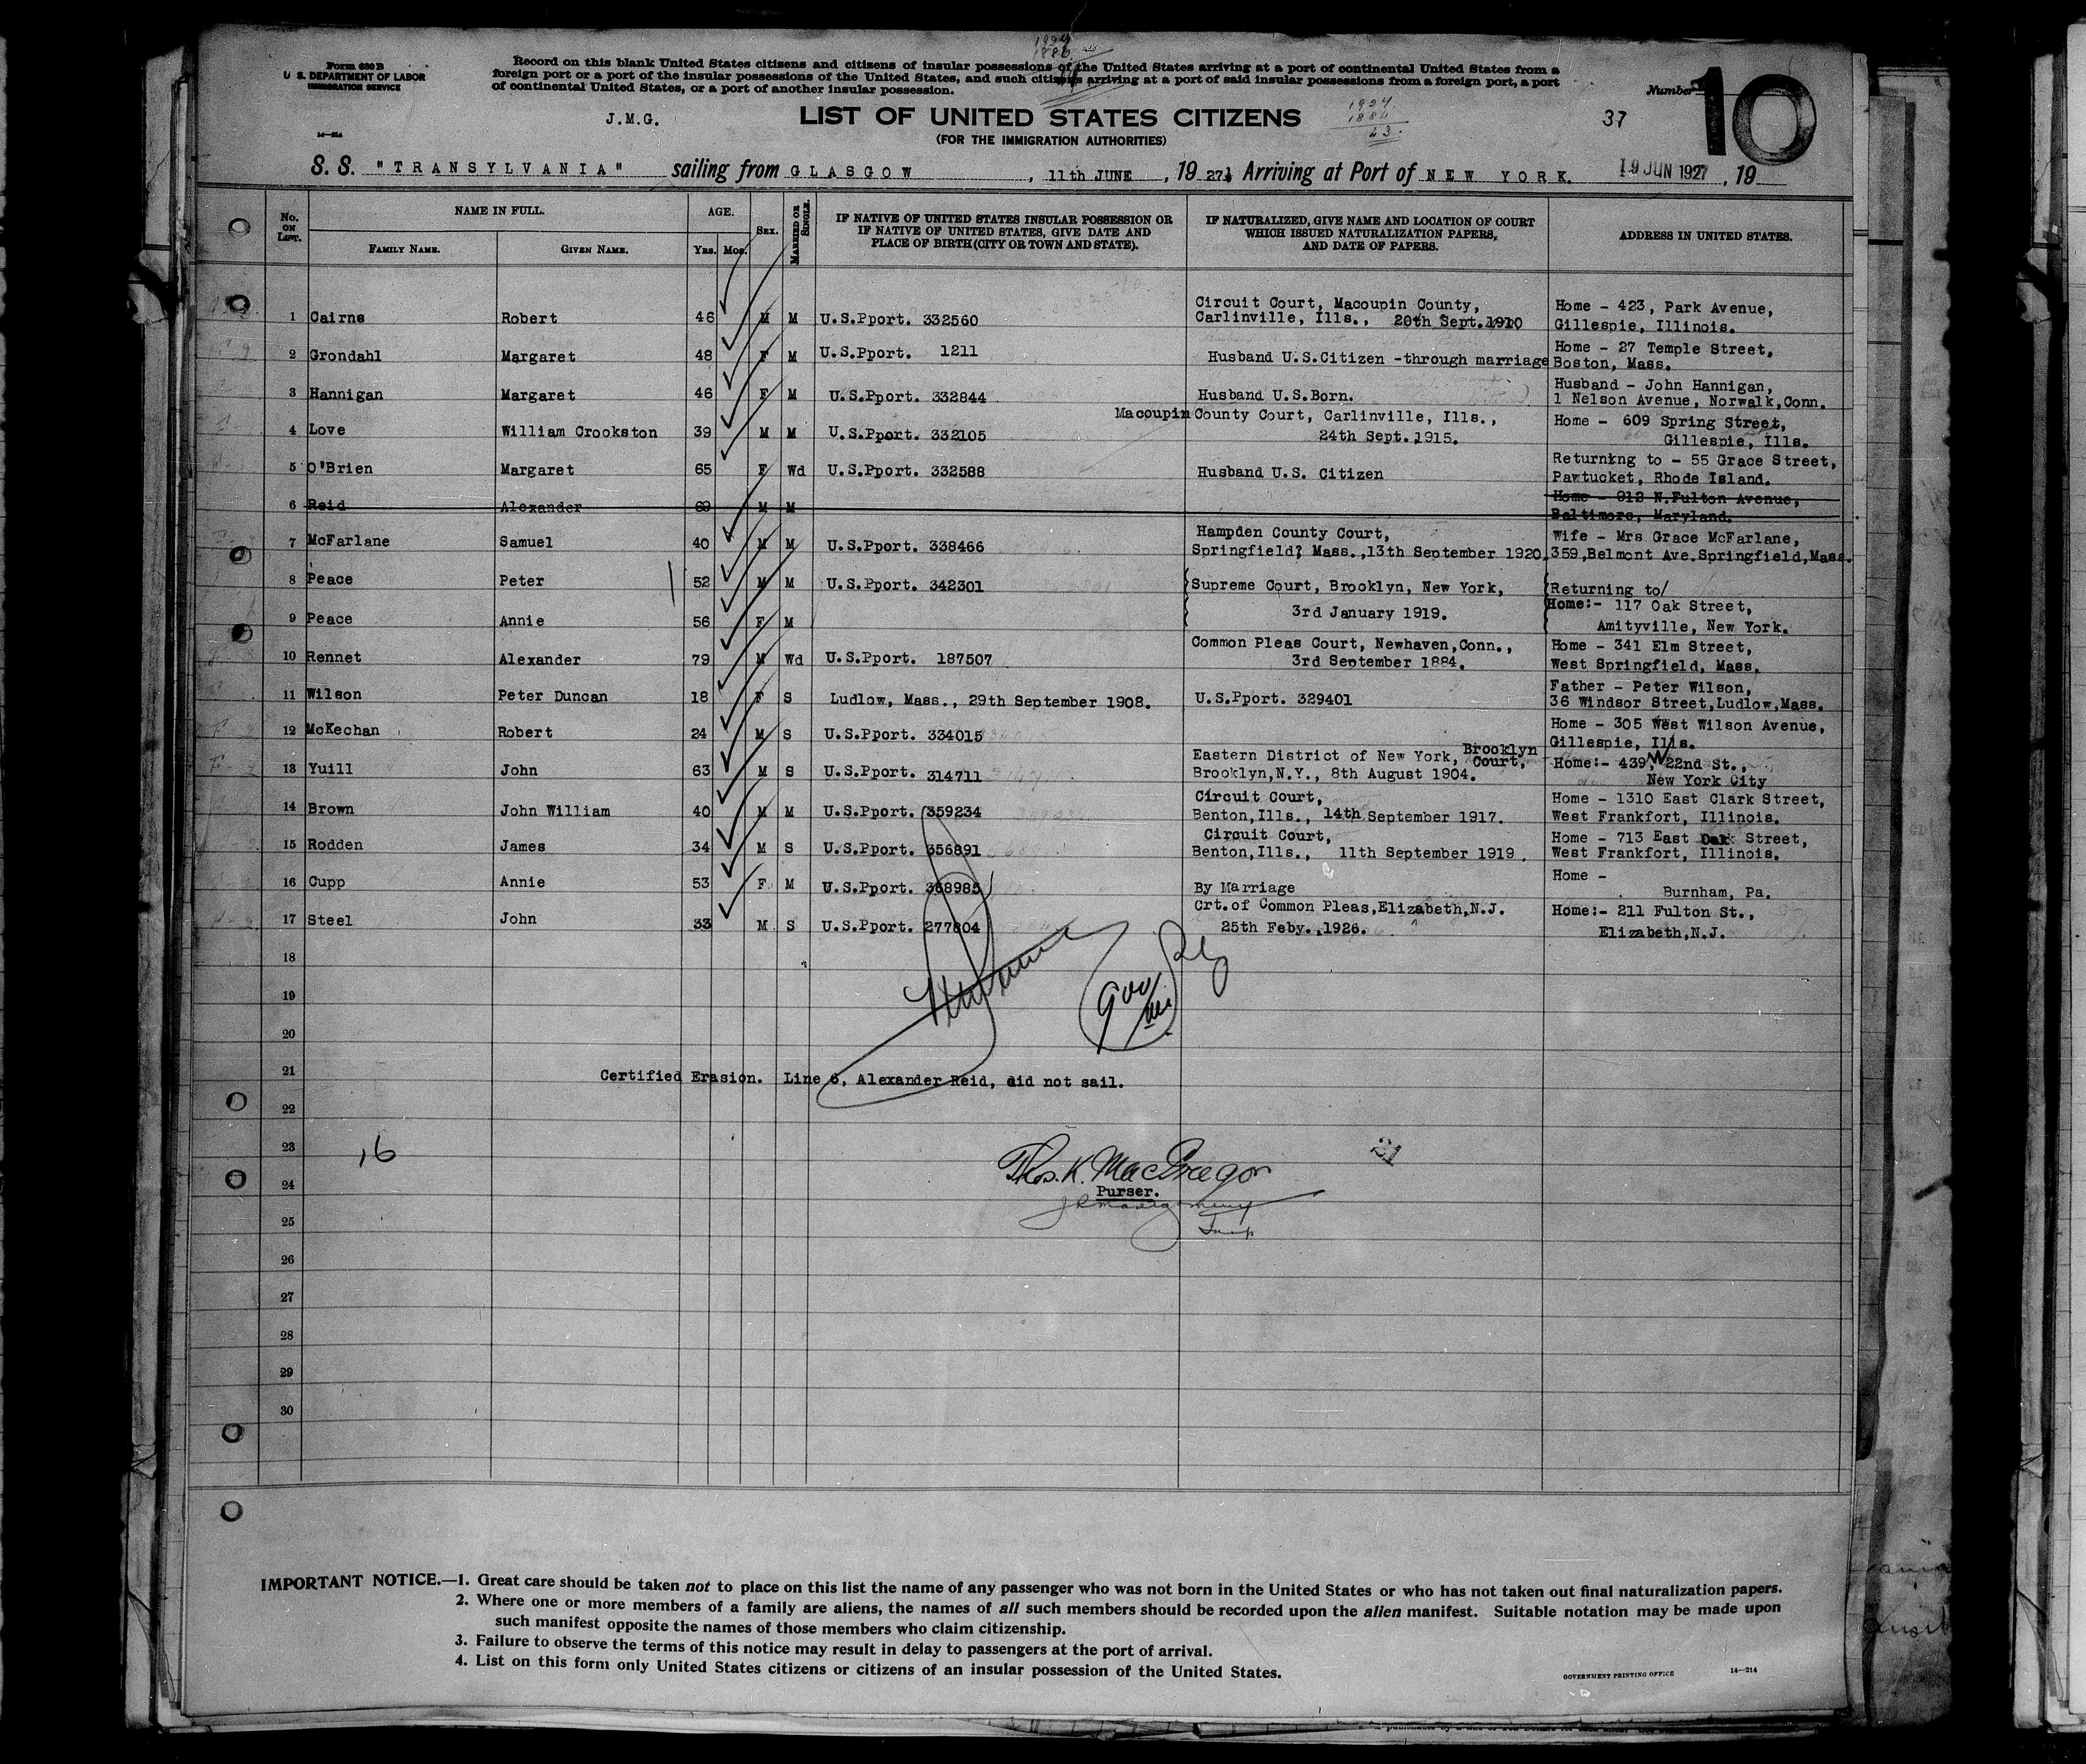 Form 630 B
U. S. DEPARTMENT OF LABOR
IMMIGRATION SERVICE
14—214
1927
1886
Record on this blank United States citizens and citizens of insular possessions of the United States arriving at a port of continental United States from a
foreign port or a port of the insular possessions of the United States, and such citizens arriving at a port of said insular possessions from a foreign port, a port
of continental United States, or a port of another insular possession.
Number
10
37
J.M.G.
LIST OF UNITED STATES CITIZENS
(FOR THE IMMIGRATION AUTHORITIES)
1927
1884
43
S. S. "TRANSYLVANIA" sailing from GLASGOW, 11th JUNE, 19 27 Arriving at Port of NEW YORK. 19 JUN 1927, 19
No. ON LIST.
NAME IN FULL.
FAMILY NAME.
GIVEN NAME.
AGE.
YRS. MOS.
SEX.
MARRIED OR SINGLE.
IF NATIVE OF UNITED STATES INSULAR POSSESSION OR
IF NATIVE OF UNITED STATES, GIVE DATE AND
PLACE OF BIRTH (CITY OR TOWN AND STATE).
IF NATURALIZED, GIVE NAME AND LOCATION OF COURT
WHICH ISSUED NATURALIZATION PAPERS,
AND DATE OF PAPERS.
ADDRESS IN UNITED STATES.
1 Cairns Robert 46 M M U.S.Pport. 332560 Circuit Court, Macoupin County, Home - 423, Park Avenue,
Carlinville, Ills., 20th Sept.1910 Gillespie, Illinois.
2 Grondahl Margaret 48 F M U.S.Pport. 1211 Husband U.S.Citizen -through marriage Home - 27 Temple Street,
Boston, Mass.
3 Hannigan Margaret 46 F M U.S.Pport. 332844 Husband U.S.Born. Husband - John Hannigan,
1 Nelson Avenue, Norwalk,Conn.
4 Love William Crookston 39 M M U.S.Pport. 332105 Macoupin County Court, Carlinville, Ills., Home - 609 Spring Street,
24th Sept.1915. Gillespie, Ills.
5 O'Brien Margaret 65 F Wd U.S.Pport. 332588 Husband U.S. Citizen Returning to - 55 Grace Street,
Pawtucket, Rhode Island.
6 Reid Alexander 69 M M Home - 912 N.Fulton Avenue,
Baltimore, Maryland.
7 McFarlane Samuel 40 M M U.S.Pport. 338466 Hampden County Court, Wife - Mrs Grace McFarlane,
Springfield, Mass.,13th September 1920. 359,Belmont Ave.Springfield,Mass.
8 Peace Peter 52 M M U.S.Pport. 342301 Supreme Court, Brooklyn, New York, Returning to/
3rd January 1919. Home:- 117 Oak Street,
9 Peace Annie 56 F M Amityville, New York.
10 Rennet Alexander 79 M Wd U.S.Pport. 187507 Common Pleas Court, Newhaven,Conn., Home - 341 Elm Street,
3rd September 1884. West Springfield, Mass.
11 Wilson Peter Duncan 18 F S Ludlow, Mass., 29th September 1908. U.S.Pport. 329401 Father - Peter Wilson,
36 Windsor Street,Ludlow,Mass.
12 McKechan Robert 24 M S U.S.Pport. 334015 Home - 305 West Wilson Avenue,
Gillespie, Ills.
13 Yuill John 63 M S U.S.Pport. 314711 Eastern District of New York, Brooklyn Court, Home:- 439, W 22nd St.,
Brooklyn,N.Y., 8th August 1904. New York City
14 Brown John William 40 M M U.S.Pport. 359234 Circuit Court, Home - 1310 East Clark Street,
Benton,Ills., 14th September 1917. West Frankfort, Illinois.
15 Rodden James 34 M S U.S.Pport. 356891 Circuit Court, Home - 713 East Oak Street,
Benton,Ills., 11th September 1919. West Frankfort, Illinois.
16 Cupp Annie 53 F M U.S.Pport. 368985 By Marriage Home -
Burnham, Pa.
17 Steel John 33 M S U.S.Pport. 277804 Crt.of Common Pleas,Elizabeth,N.J. Home:- 211 Fulton St.,
25th Feby.,1926. Elizabeth,N.J.
18
19
20
21 Certified Erasion. Line 6, Alexander Reid, did not sail.
22
23
16
21
Thos. K. MacGregor
24
Purser.
25
26
27
28
29
30
IMPORTANT NOTICE.—1. Great care should be taken not to place on this list the name of any passenger who was not born in the United States or who has not taken out final naturalization papers.
2. Where one or more members of a family are aliens, the names of all such members should be recorded upon the alien manifest. Suitable notation may be made upon
such manifest opposite the names of those members who claim citizenship.
3. Failure to observe the terms of this notice may result in delay to passengers at the port of arrival.
4. List on this form only United States citizens or citizens of an insular possession of the United States.
GOVERNMENT PRINTING OFFICE
14—214